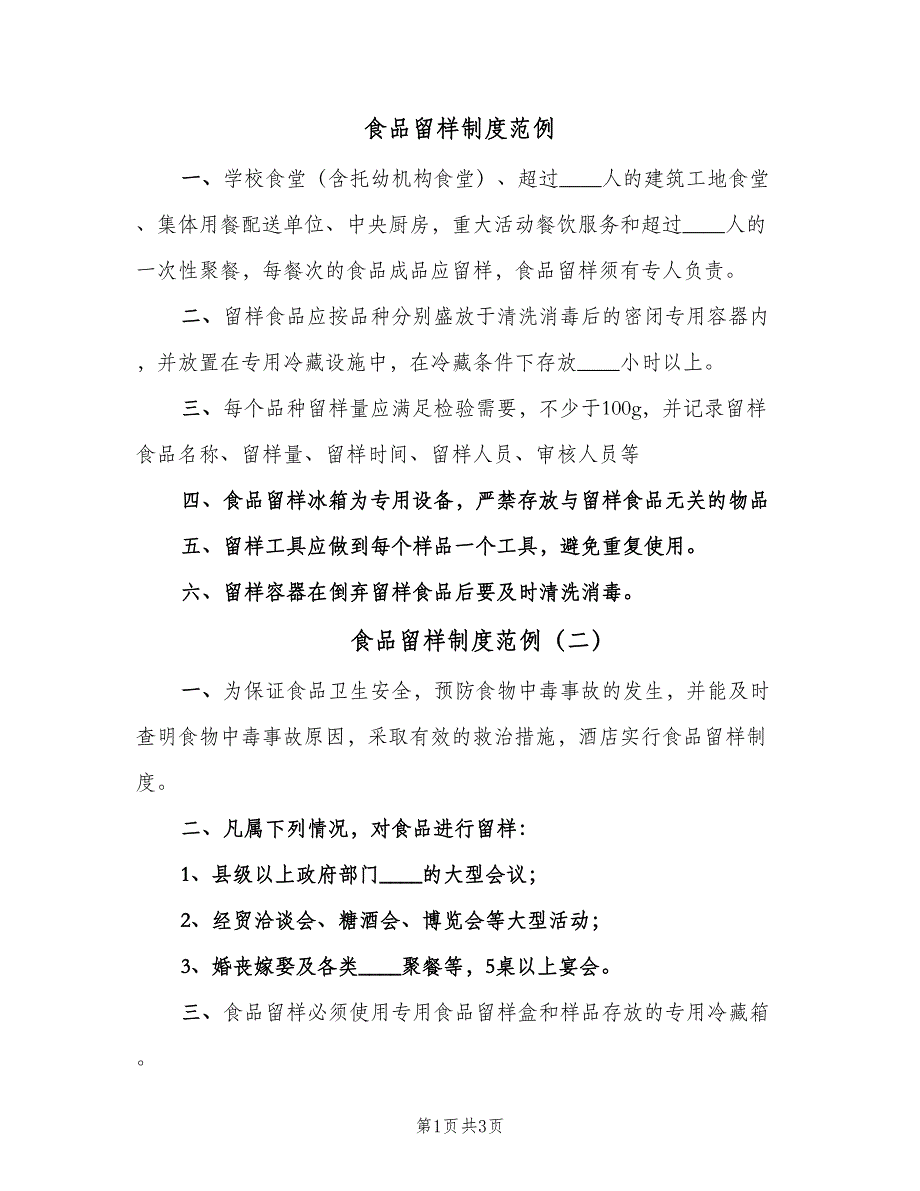 食品留样制度范例
一、学校食堂（含托幼机构食堂）、超过____人的建筑工地食堂
、集体用餐配送单位、中央厨房，重大活动餐饮服务和超过____人的
一次性聚餐，每餐次的食品成品应留样，食品留样须有专人负责。
二、留样食品应按品种分别盛放于清洗消毒后的密闭专用容器内
，并放置在专用冷藏设施中，在冷藏条件下存放____小时以上。
三、每个品种留样量应满足检验需要，不少于100g，并记录留样
食品名称、留样量、留样时间、留样人员、审核人员等
四、食品留样冰箱为专用设备，严禁存放与留样食品无关的物品
五、留样工具应做到每个样品一个工具，避免重复使用。
六、留样容器在倒弃留样食品后要及时清洗消毒。
食品留样制度范例（二）
一、为保证食品卫生安全，预防食物中毒事故的发生，并能及时
查明食物中毒事故原因，采取有效的救治措施，酒店实行食品留样制
度。
二、凡属下列情况，对食品进行留样：
1、县级以上政府部门____的大型会议；
2、经贸洽谈会、糖酒会、博览会等大型活动；
3、婚丧嫁娶及各类____聚餐等，5桌以上宴会。
三、食品留样必须使用专用食品留样盒和样品存放的专用冷藏箱
。
第1页共3页